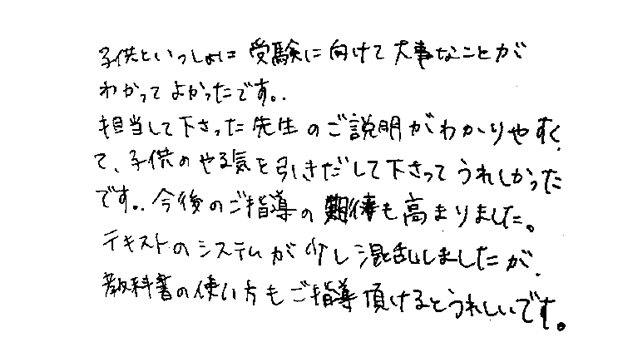 子供といっしょに受験に向けて大事なことが
わかってよかったです。.
担当して下さった先生のご説明がわかりやすく
て、子供のやる気を引きだして下さってうれしかった
です.. 今後のご指導の期待も高まりました。
テキストのシステムが少し混乱しましたが、
教科書の使い方もご指導頂けるとうれしいです。